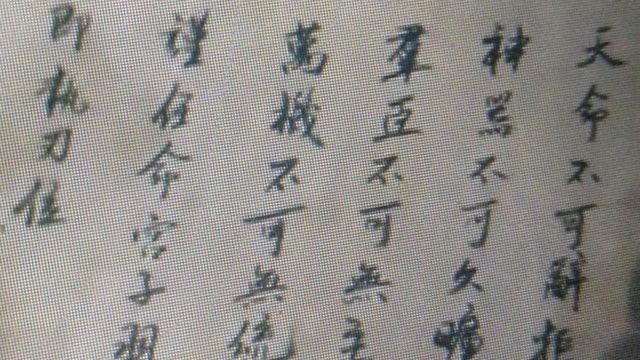 天命不可辭拒
神器不可久曠
羣臣不可無主
萬機不可無統
謹任命宮子羽
即執刃位